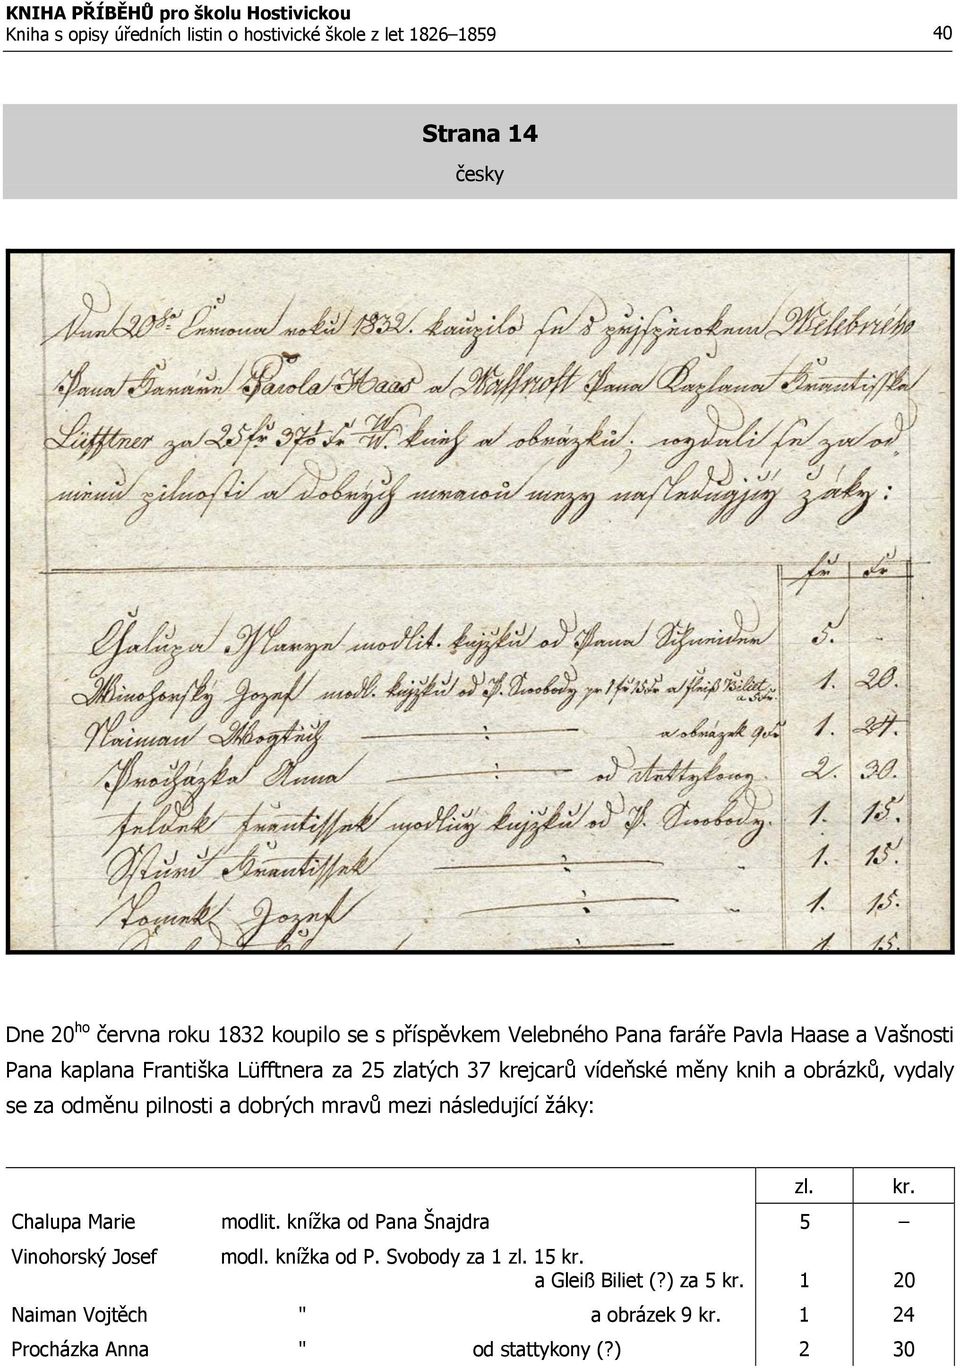 KNIHA PŘÍBĚHŮ pro školu Hostivickou
Kniha s opisy úředních listin o hostivické škole z let 1826 1859 40
Strana 14
česky
Dne 20ho Června roku 1832. kaupilo se s přjspěwkem Welebného
Pana Faráře Pawla Haas a Wassnosti Pana Kaplana Frantisska
Lüfftner za 25 fr 37 Xr W.W. knih a obrázků; wydali se za od
měnu pilnosti a dobrých mrawů mezy nasledugjcý žáky:
fr Xr
Chalupa Marye modlit. knjžku od Pana Schneider 5. -
Winohorský Jozef modl. knjžku od P. Swobody pr 1 fr 15 Xr a fleiß Billet a 5 Xr. 1. 20.
Naiman Wogtěch : a obrázek 9 Xr 1. 24.
Procházka Anna : od 2. 30.
frantissek modlicý knjžku od P. Swobody. 1. 15.
Frantissek : 1. 15.
Tomek Jozef : - 1. 15.
1. 15.
Dne 20ho června roku 1832 koupilo se s příspěvkem Velebného Pana faráře Pavla Haase a Vašnosti
Pana kaplana Františka Lüfftnera za 25 zlatých 37 krejcarů vídeňské měny knih a obrázků, vydaly
se za odměnu pilnosti a dobrých mravů mezi následující žáky:
zl. kr.
Chalupa Marie modlit. knížka od Pana Šnajdra 5 –
Vinohorský Josef modl. knížka od P. Svobody za 1 zl. 15 kr.
a Gleiß Biliet (?) za 5 kr. 1 20
Naiman Vojtěch " a obrázek 9 kr. 1 24
Procházka Anna " od stattykony (?) 2 30